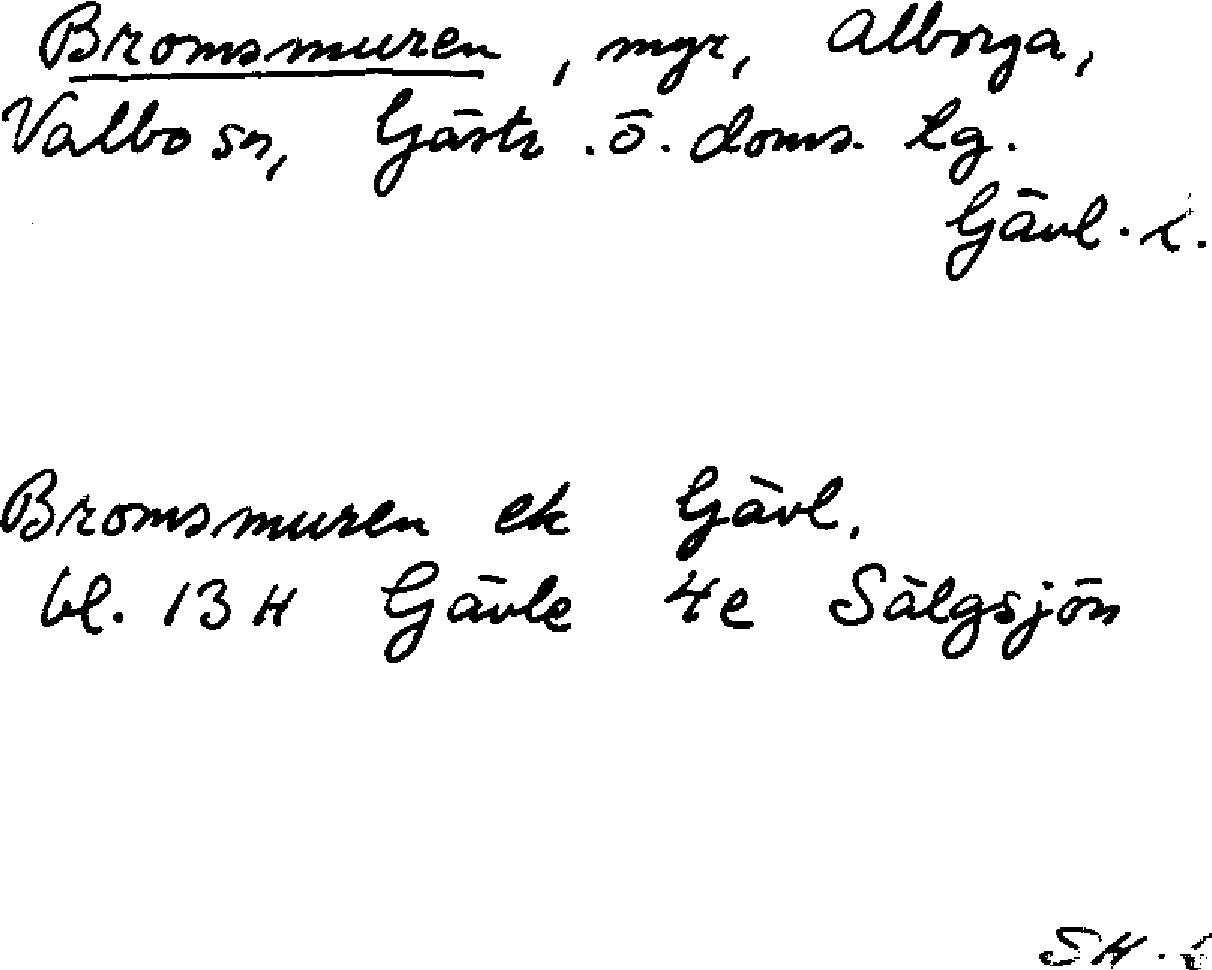 Bromsmuren, myr, Alborga,
Valbo sn, Gästr. ö. doms. lg.
Gävl. l.
Bromsmuren ek Gävl.
bl. 13H Gävle 4e Sälgsjön
SH.